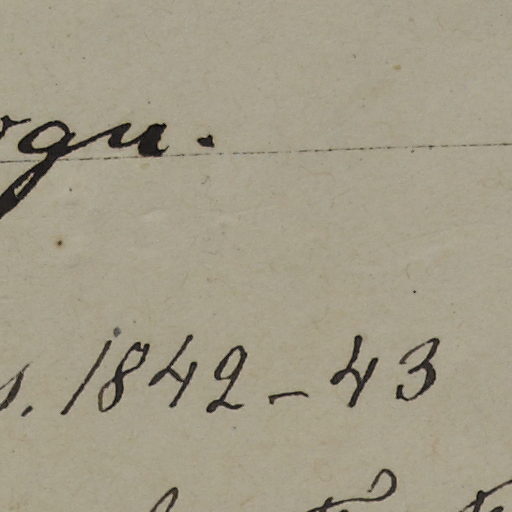 ogu.
s. 1842-43